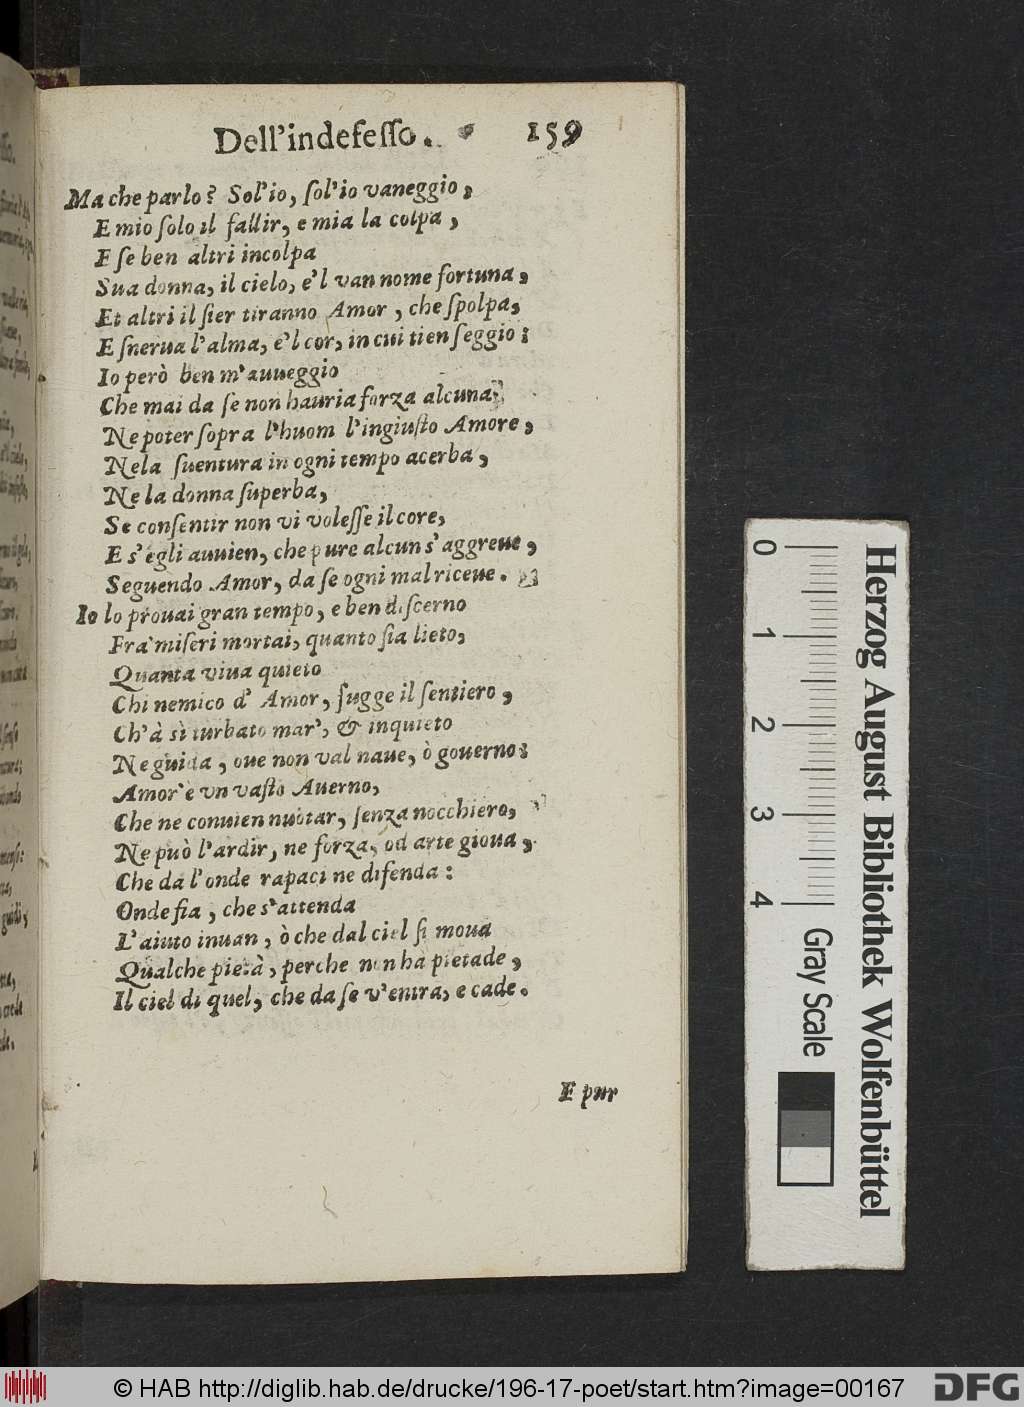 Dell'indefeſſo. 159
Ma che parlo? Sol'io, ſol'io vaneggio,
E mio ſolo il fallir, e mia la colpa,
E ſe ben altri incolpa
Sua donna, il cielo, e'l van nome fortuna,
Et altri il fier tiranno Amor, che ſpolpa,
E ſnerua l'alma, e'l cor, in cui tien ſeggio:
Io però ben m'auueggio
Che mai da ſe non hauria forza alcuna,
Ne poter ſopra l'huom l'ingiuſto Amore,
Ne la ſuentura in ogni tempo acerba,
Ne la donna ſuperba,
Se conſentir non vi voleſſe il core,
E s'egli auuien, che pure alcun s'aggreue,
Seguendo Amor, da ſe ogni mal riceue.
Io lo prouai gran tempo, e ben diſcerno
Fra miſeri mortai, quanto ſia lieto,
Quanta viua quieto
Chi nemico d' Amor, fugge il ſentiero,
Ch'à sì turbato mar', & inquieto
Ne guida, oue non val naue, ò gouerno:
Amor e vn vaſto Auerno,
Che ne conuien nuotar, ſenza nocchiero,
Ne può l'ardir, ne forza, od arte gioua,
Che da l'onde rapaci ne difenda:
Onde fia, che s'attenda
L'aiuto inuan, ò che dal ciel ſi moua
Qualche pietà, perche non ha pietade,
Il ciel di quel, che da ſe v'entra, e cade.
E pur
0 1 2 3 4
Gray Scale
Herzog August Bibliothek Wolfenbüttel
© HAB http://diglib.hab.de/drucke/196-17-poet/start.htm?image=00167
DFG